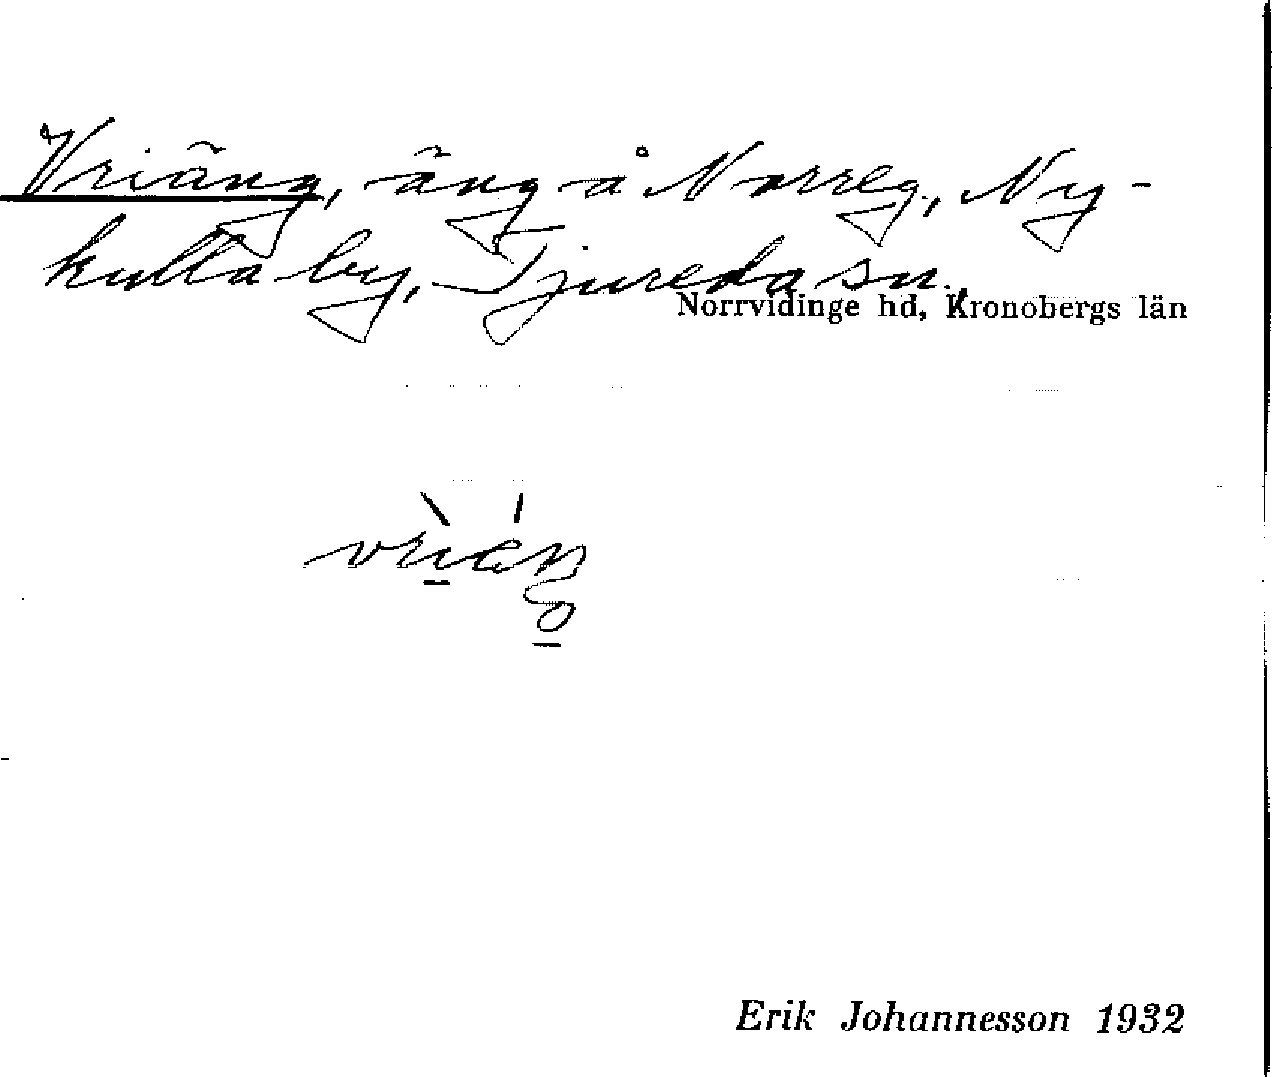 Vriäng, äng å Norreg., Ny-
kulla by, Tjureda sn.,
Norrvidinge hd, Kronobergs län
Erik Johannesson 1932